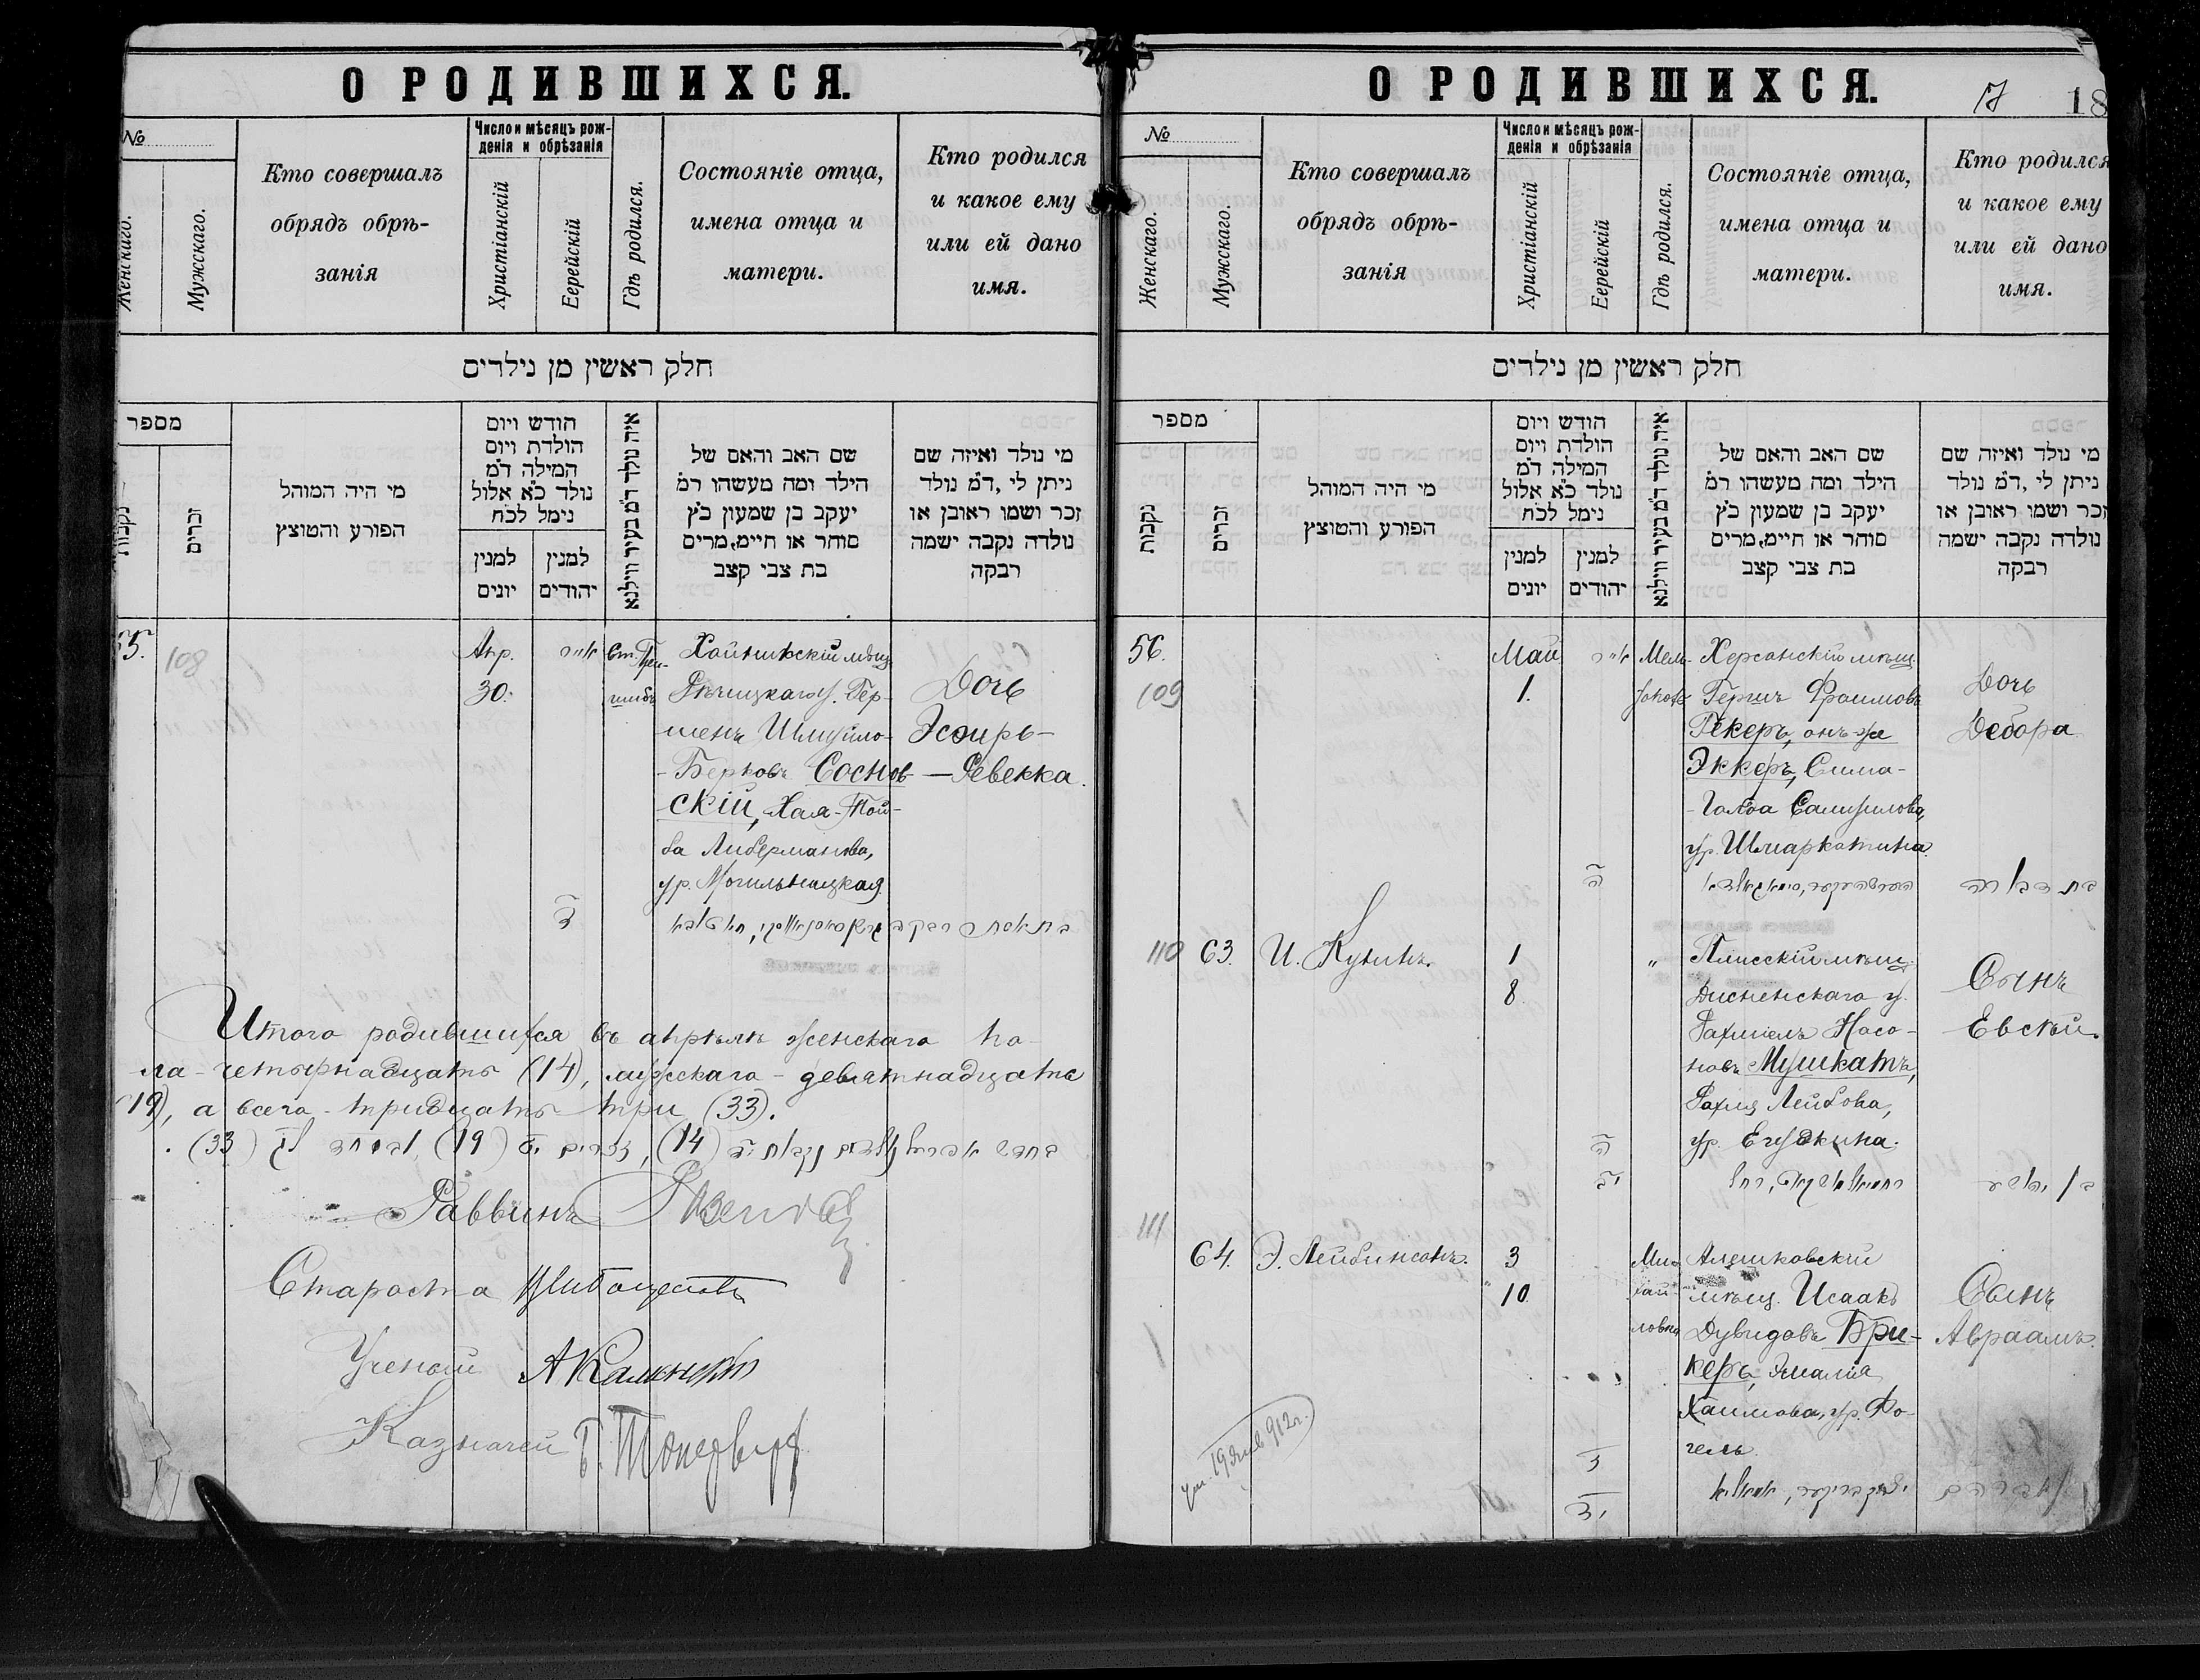 О РОДИВШИХСЯ.
№
Женскаго.
Мужскаго.
Кто совершалъ
обрядъ обрѣ-
занія
Число и мѣсяцъ рож-
денія и обрѣзанія
Христіанскій
Еерейскій
Гдѣ родился.
Состояніе отца,
имена отца и
матери.
Кто родился
и какое ему
или ей дано
имя.
חלק ראשין מן נילדים
מספר
נקבות
זכרים
מי היה המוהל
הפורע והטוצץ
הודש ויום
הולדת ויום
המילה ד״מ
נולד כ״א אלול
נימל לכ״ח
למנין
יונים
למנין
יהודים
איה נולד ד״מ בעיר ווילנא
שם האב והאם של
הילד ומה מעשהו ד״מ
יעקב בן שמעון כ״ץ
סוחר או חיימ,מרים
בת צבי קצב
מי נולד ואיזה שם
ניתן לי ,ד״מ נולד
זכר ושמו ראובן או
נולדה נקבה ישמה
רבקה
55.
108
Апр.
30.
אייר
ד
Хойникскій мѣщ.
Рѣчицкаго у. Гер-
шенъ Шмуйло-
-Берковъ Соснов-
скій, Хая-Той-
ба Либерманова,
ур. Могильницкая.
Дочь
Эсѳирь-
-Ревекка.
Итого родившихся въ апрѣлѣ женскаго по-
ла-четырнадцать (14), мужскаго-девятнадцать
(19), а всего-тридцать три (33).
(33) לג (19) זכרים יט (14) נקבות יד
Раввинъ
Староста
Ученый
Казначей
О РОДИВШИХСЯ.
17
18
№
Женскаго.
Мужскаго.
Кто совершалъ
обрядъ обрѣ-
занія
Число и мѣсяцъ рож-
денія и обрѣзанія
Христіанскій
Еерейскій
Гдѣ родился.
Состояніе отца,
имена отца и
матери.
Кто родился
и какое ему
или ей дано
имя.
חלק ראשין מן נילדים
מספר
נקבות
זכרים
מי היה המוהל
הפורע והטוצץ
הודש ויום
הולדת ויום
המילה ד״מ
נולד כ״א אלול
נימל לכ״ח
למנין
יונים
למנין
יהודים
איה נולד ד״מ בעיר ווילנא
שם האב והאם של
הילד ומה מעשהו ד״מ
יעקב בן שמעון כ״ץ
סוחר או חיימ,מרים
בת צבי קצב
מי נולד ואיזה שם
ניתן לי ,ד״מ נולד
זכר ושמו ראובן או
נולדה נקבה ישמה
רבקה
56.
109
Май
1.
אייר
ה
Херсонскій мѣщ.
Гершъ Фроимовъ
Гекеръ, онъ-же
Эккеръ, Сима-
-Голда Самуилова,
ур. Шмаркатина.
Дочь
Дебора
בת דבורה
110
63.
И. Кунинъ.
1
8
"
ה
יב
Плисскій мѣщ.
Дисненскаго у.
Рахміелъ Насо-
новъ Мушкатъ,
Рахиль Лейбова,
ур. Егудкина.
Сынъ
Евсѣй.
111
64.
Э. Лейбинсонъ.
3
10
Ми-
хай-
ловка
ז
יד
Алешковскій
мѣщ. Исаакъ
Дувидовъ Бри-
керъ, Эмалія
Хаимова, ур. Фо-
гель.
Сынъ
Авраамъ.
אברהם
ум. 19 Янв 912 г.